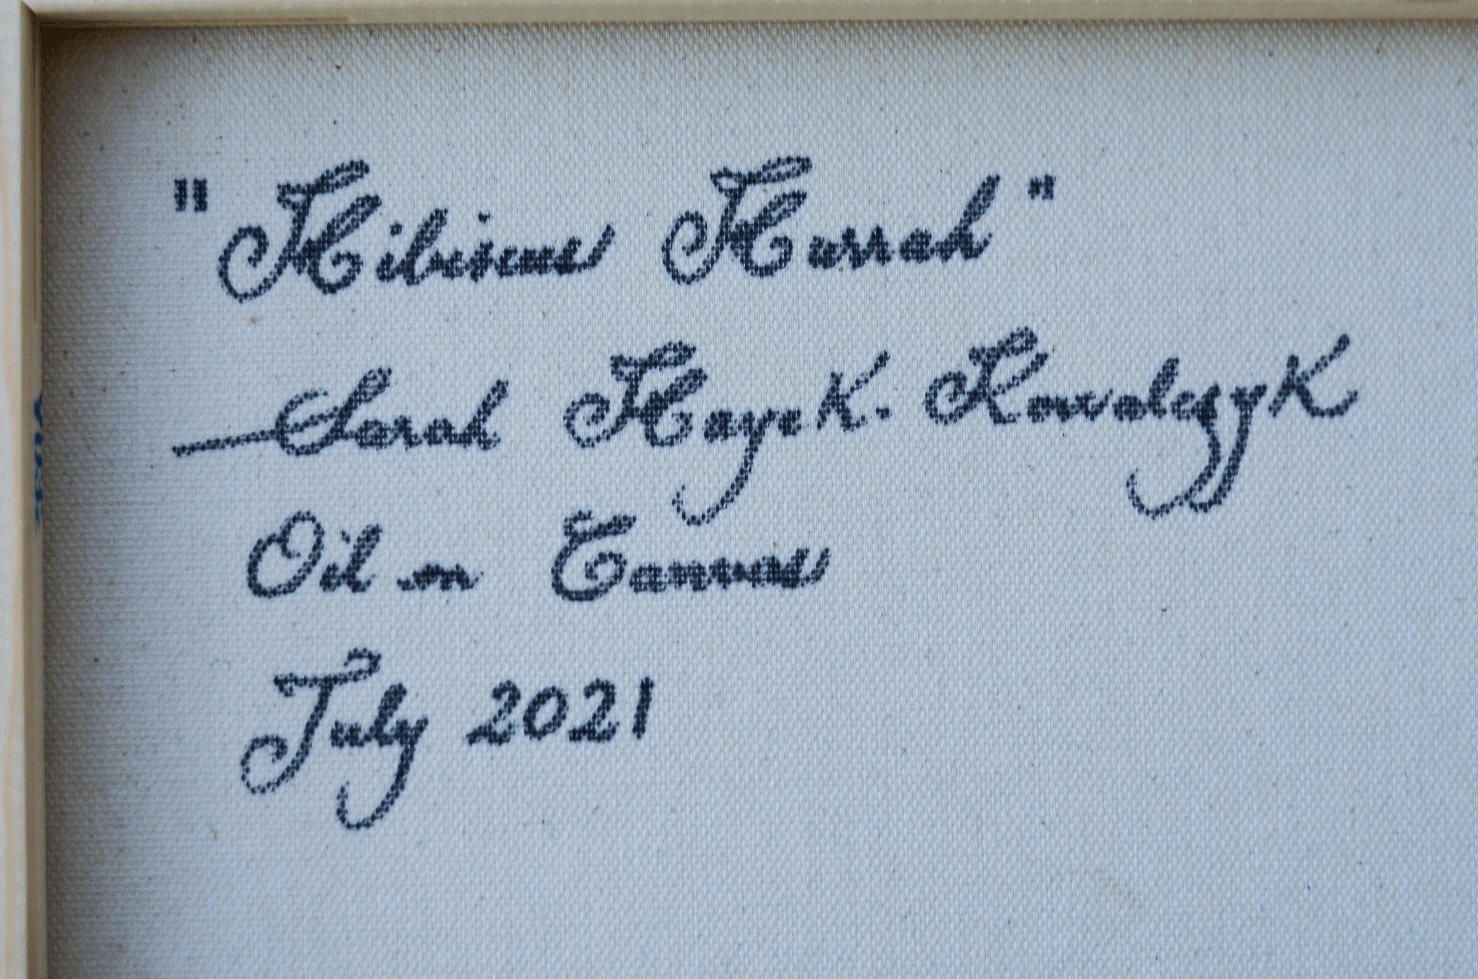 "Hibiscus Hurrah"
Sarah Hayek. Kowalczyk
Oil on Canvas
July 2021